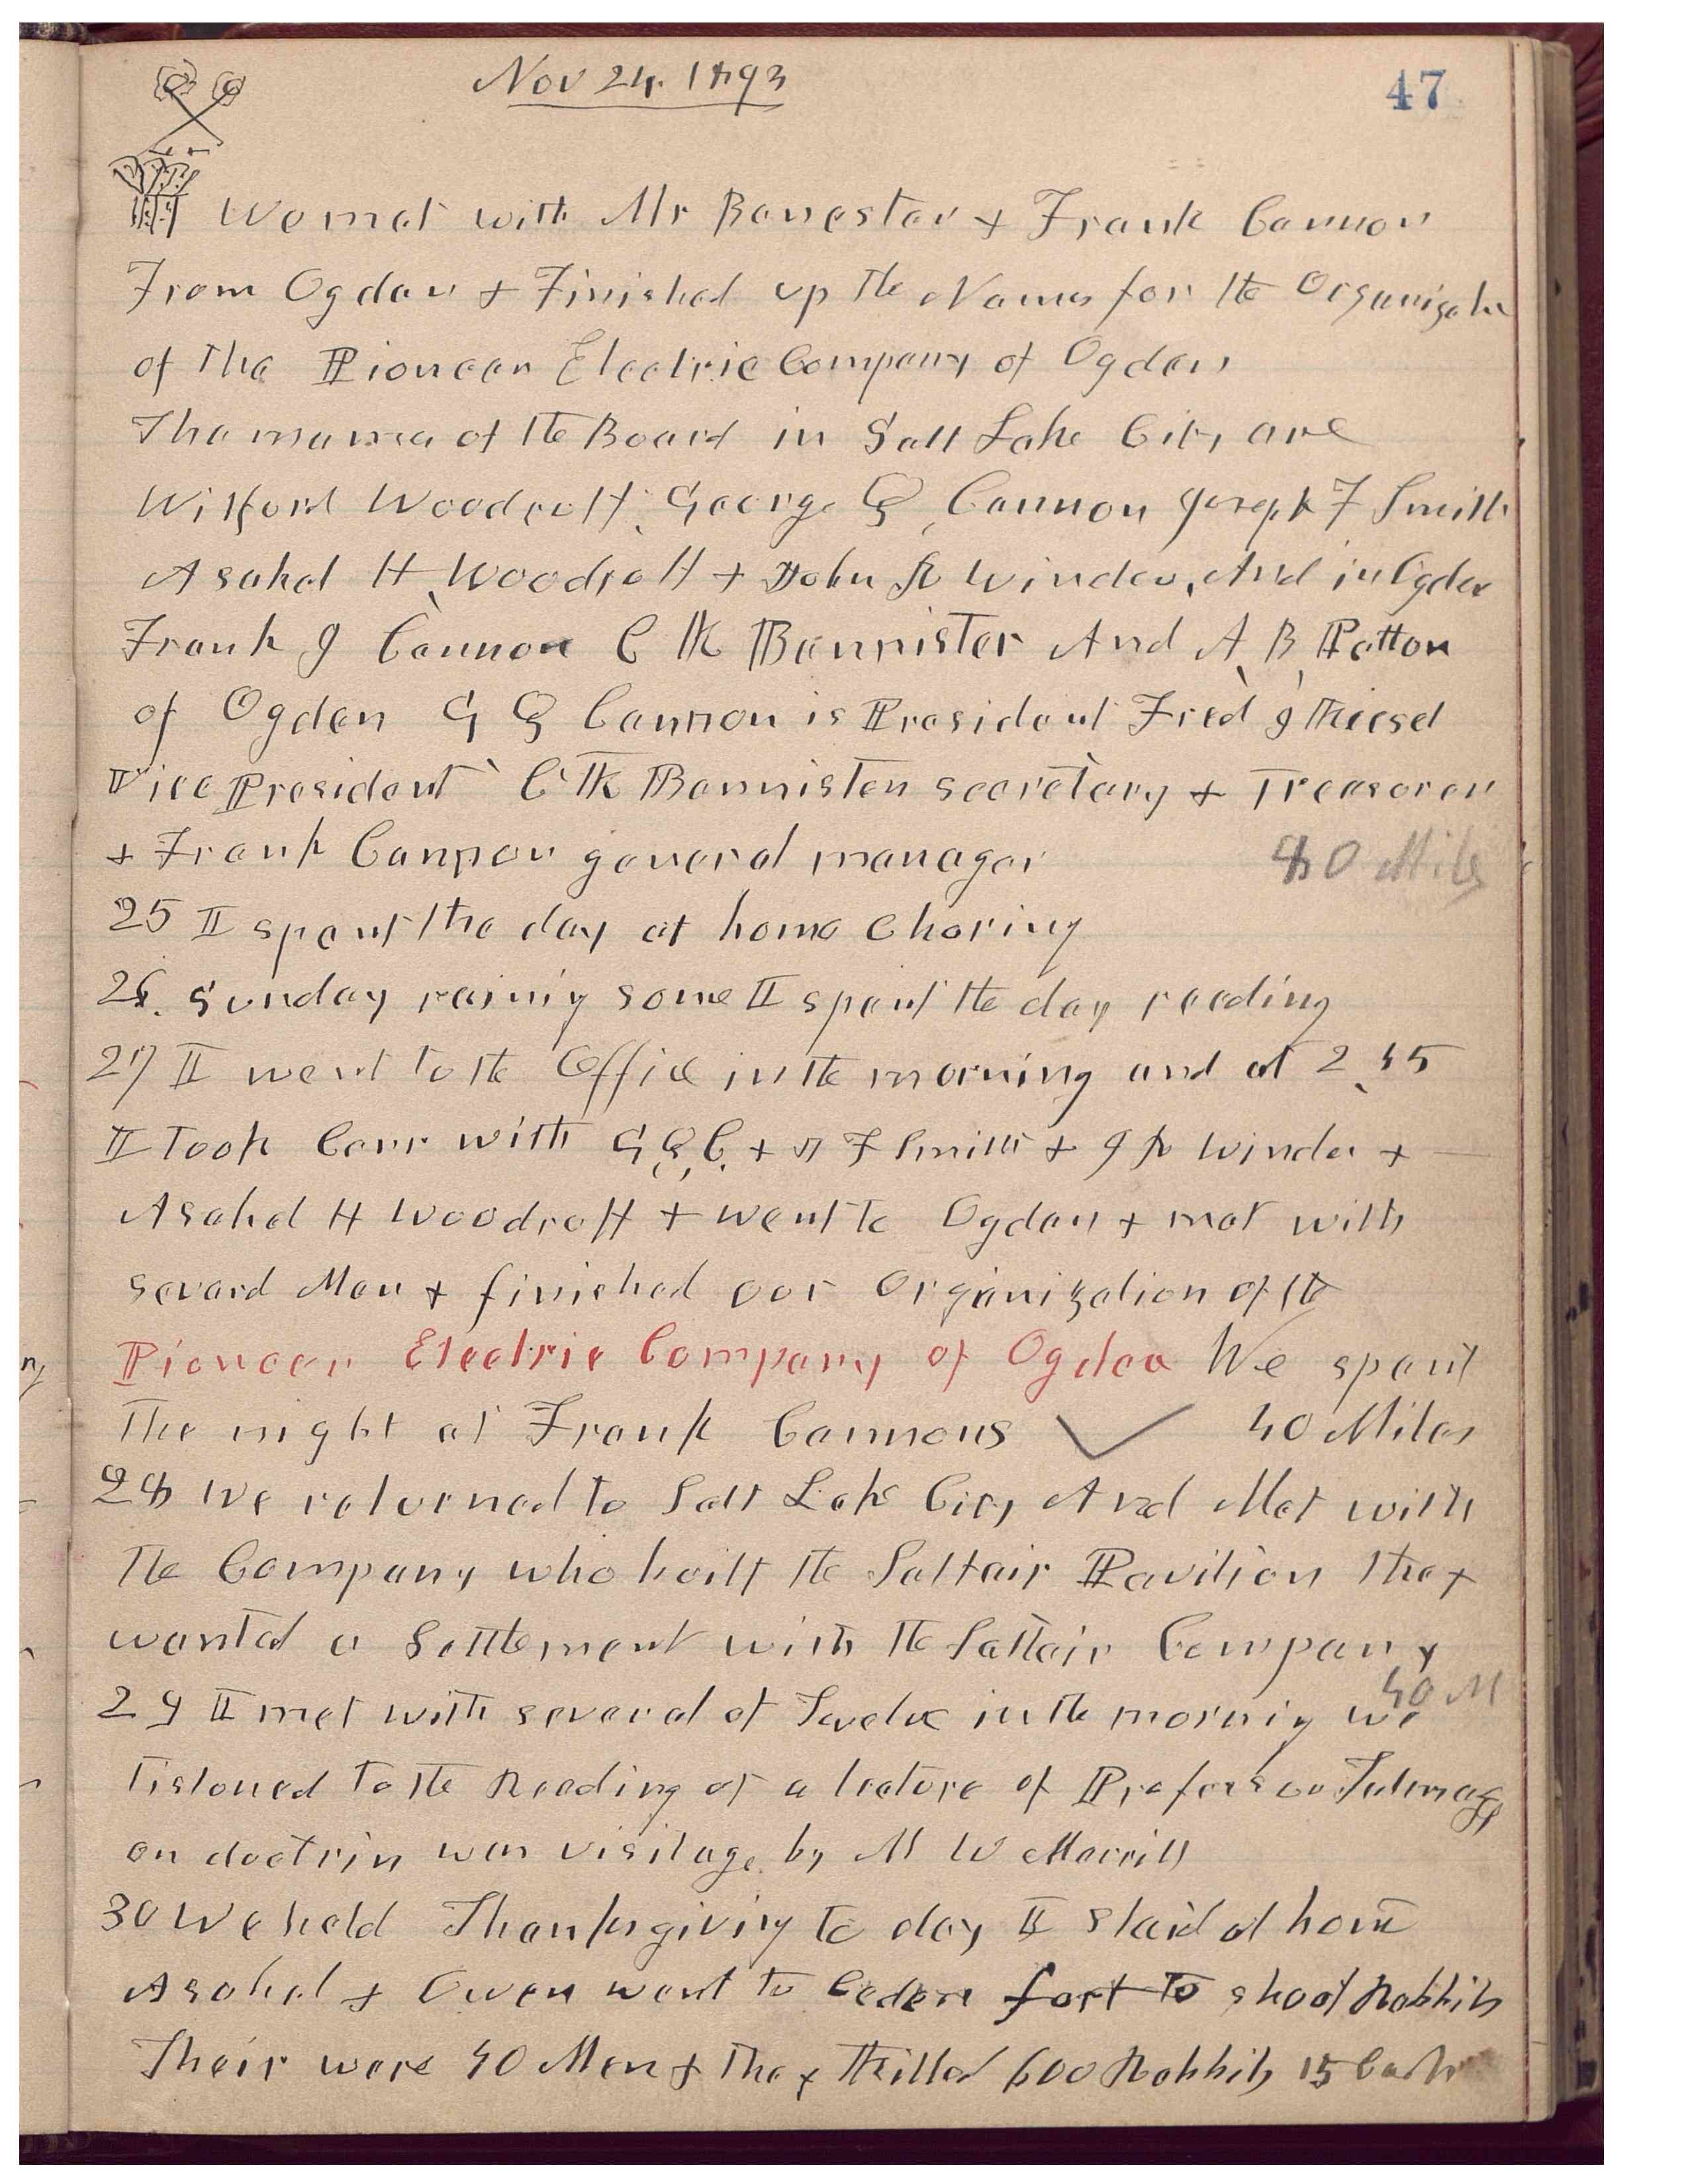 Nov 24. 1893
47
We met with Mr Banester + Frank Cannon
From Ogden + Finished up the Names for the Organizatn
of the Pioneer Electric Company of Ogden
The names of the Board in Salt Lake City are
Wilford Woodruff, George Q, Cannon Joseph F Smith
Asahel H, Woodruff + John R Winder, And in Ogden
Frank J Cannon C K Bannister And A, B, Patton
of Ogden G Q Cannon is President Fred J Kiesel
Vice President C K Bannister secretary + Treasorer
+ Frank Cannon general manager 80 Miles
25 I spent the day at home Choring
26. Sunday rainiy some I spent the day reading
27 I went to the Office in the morning and at 2,45
I took Carr with G,Q,C. + J F Smith + J R Winder +
Asahel H Woodruff + went to Ogden + met with
several Men + finished our Organization of the
Pioneer Electric Company of Ogden We spent
the night at Frank Cannons 40 Miles
28 We returned to Salt Lake City And Met with
the Company who built the Saltair Pavilion they
wanted a Settlement with the Saltair Company
40 M
29 I met with several of Twelve in the morniig we
listened to the Reading of a lecture of Professor Talmage
on doctrin was visitage by M W Merrill
30 We held Thanksgiving to day I staid at home
Asahel + Owen went to Cedar fort to shoot Rabbits
Their were 40 Men + they Killed 600 Rabbits 15 Each